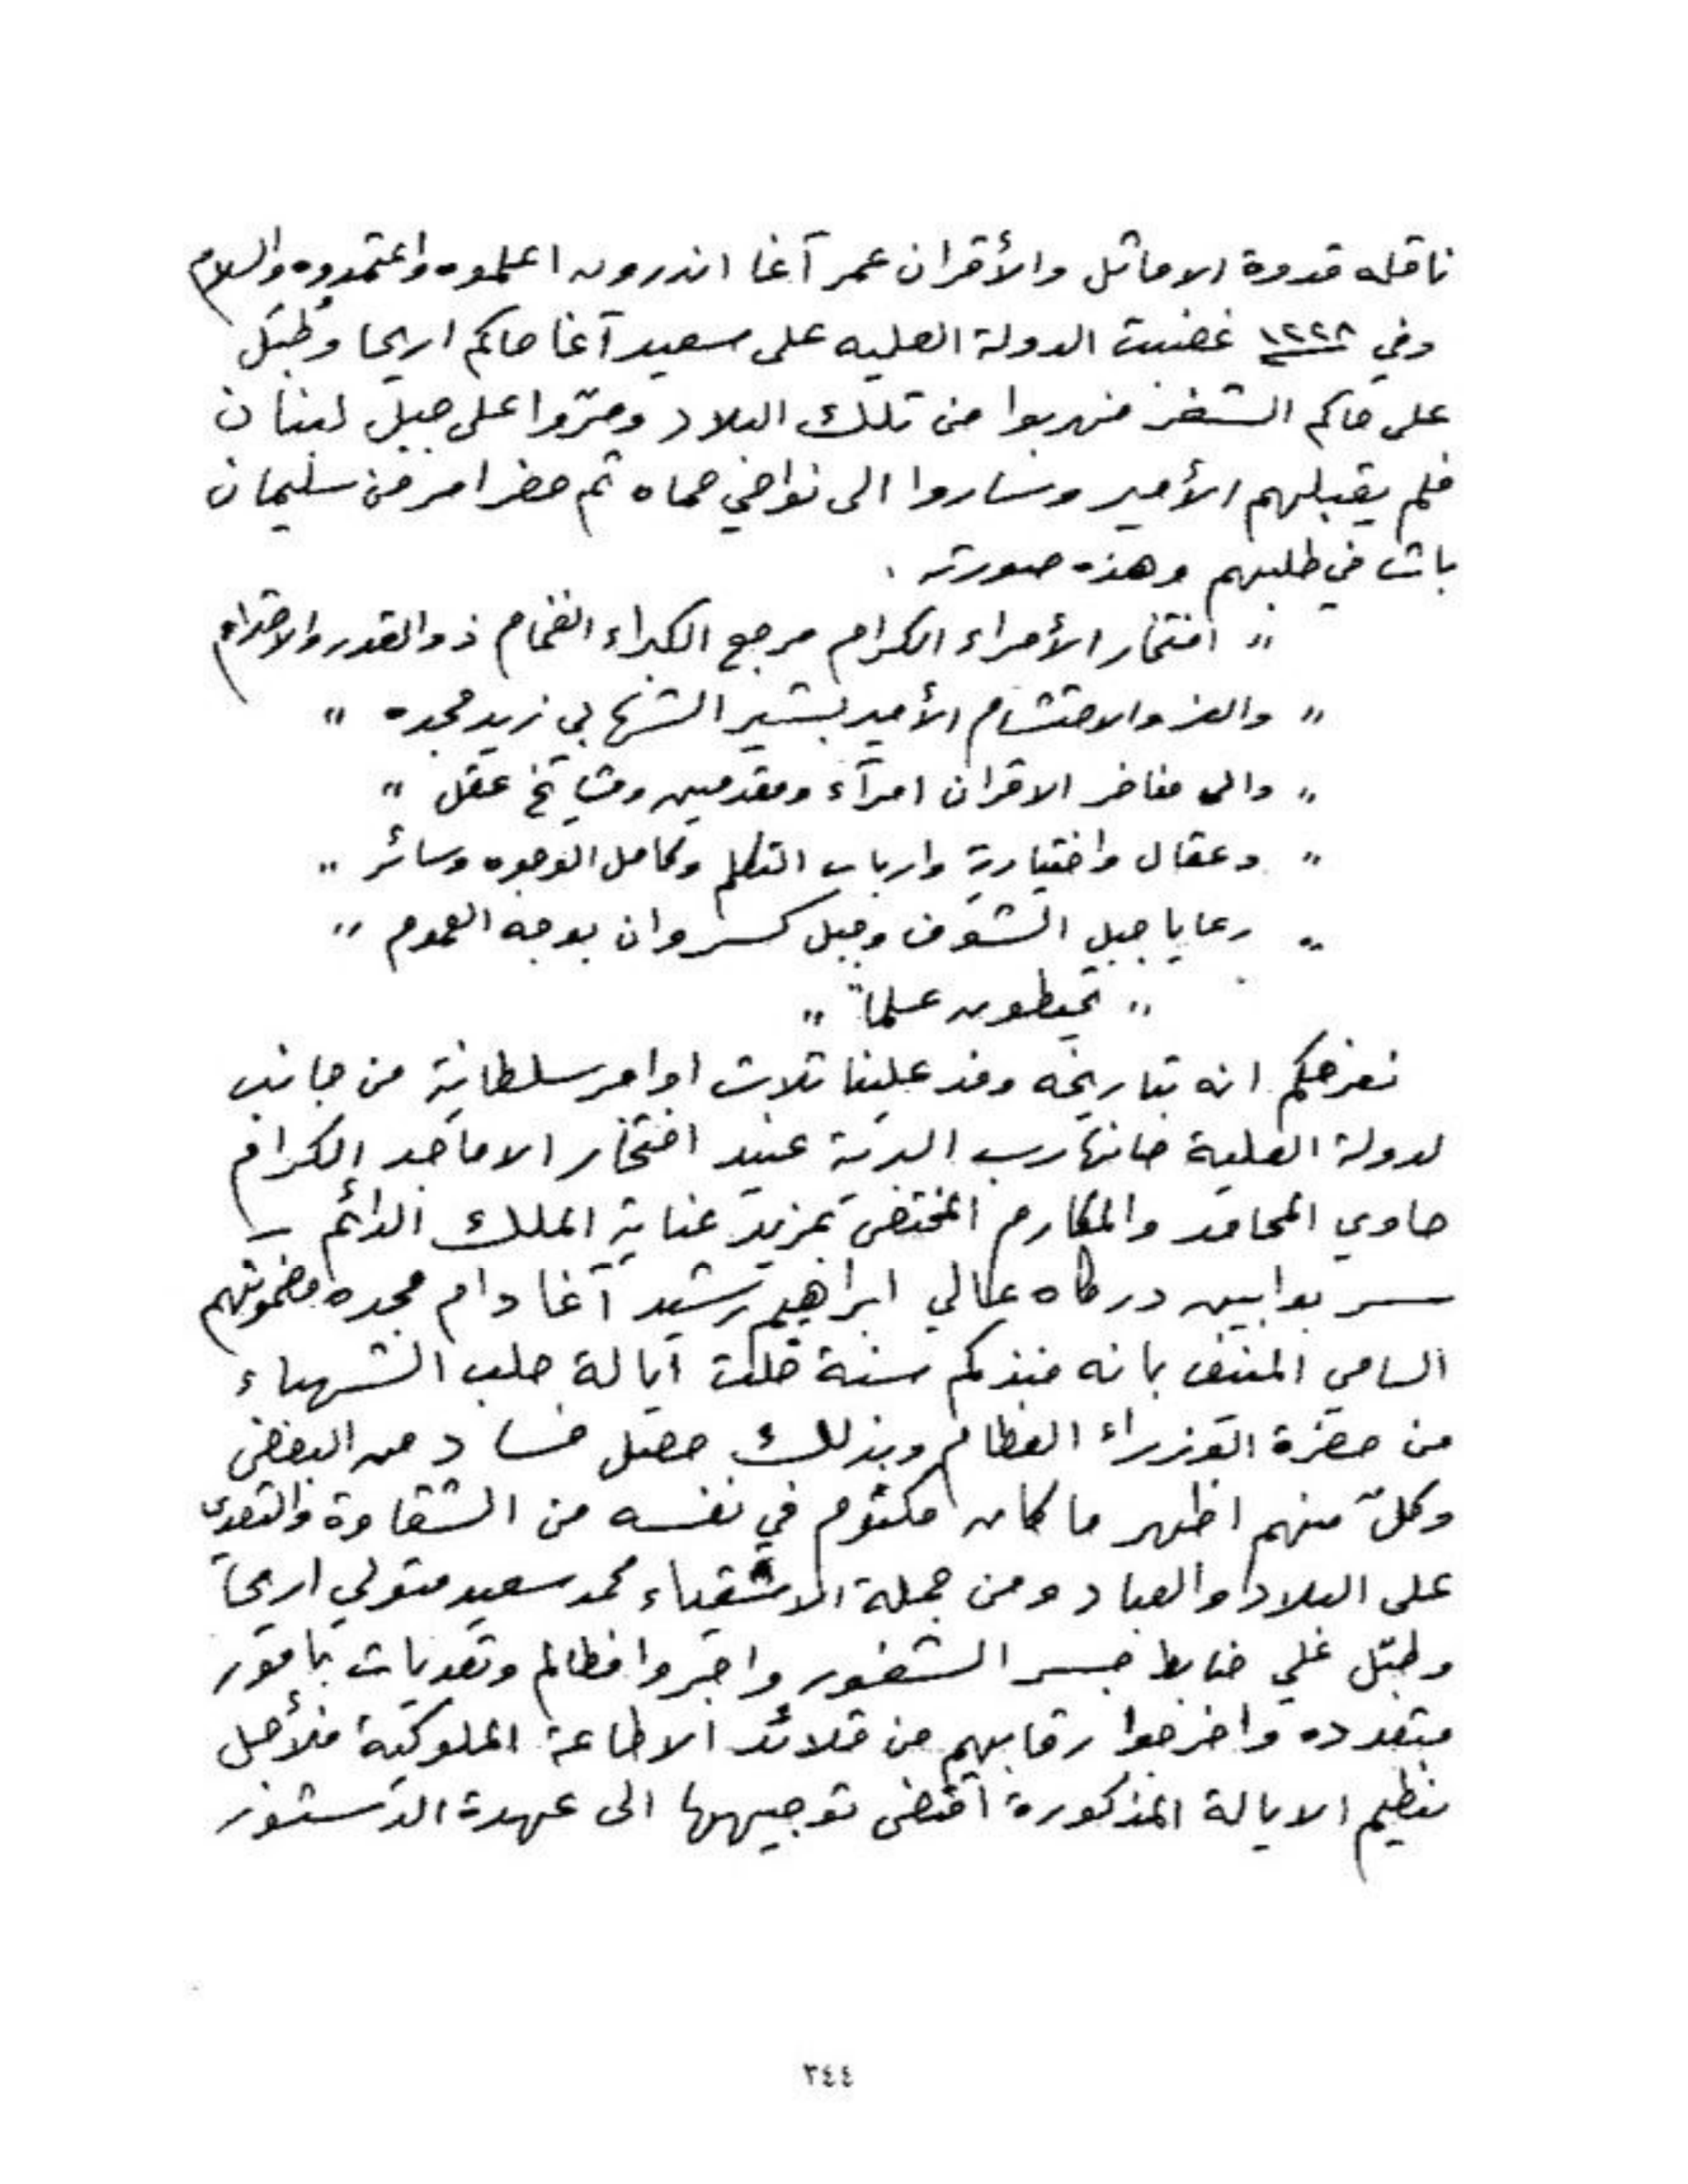 ناقله قدوة الاماثل والأقران عمر آغا اندرون اعلموه واعتمدوه والسلام
وفي ١٢٢٨ غضبت الدولة العليه على سعيد آغا حاكم اريحا وطبّل
على حاكم الشغر فهربوا من تلك البلاد ومرّوا على جبل لبنان
فلم يقبلهم الأمير وساروا الى نواحي حماه ثم حضر امر من سليمان
باشا في طلبهم وهذه صورته .
" افتخار الأمراء الكرام مرجع الكبراء الفخام ذو القدر والاحترام
" والعز والاحتشام الأمير بشير الشهابي زيد مجده "
" والى مفاخر الاقران امرآء ومقدمين ومشايخ عقل "
" وعقال واختيارية وارباب التكلم وكامل الوجوه وسائر "
" رعايا جبل الشوف وجبل كسروان بوجه العموم "
" تحيطون علماً "
نعرفكم انه بتاريخه وفد علينا تلات اوامر سلطانية من جانب
لدولة العلية صانها رب البرية عبيد افتخار الاماجد الكرام
حاوي المحامد والمكارم المختص بمزيد عناية الملك الدائم
سر بوابين دركاه عالي ابراهيم رشيد آغا دام مجده مضمونهم
السامي المنيف بانه منذ كم سنة خلت ايالة حلب الشهباء
من حضرة الوزراء العظام وبذلك حصل فساد من البعض
وكلّ منهم اظهر ما كان مكتوم في نفسه من الشقاوة والتعدي
على البلاد والعباد ومن جملة الاشقياء محمد سعيد متولي اريحا
وطبّل علي ضابط جسر الشغور واجروا مظالم وتعديات بامور
متعدده واخرجوا رقابهم من قلائد الاطاعة الملوكية فلأجل
نظيم الايالة المذكورة اقتضى توجيهها الى عهدة الدستور
٣٤٤